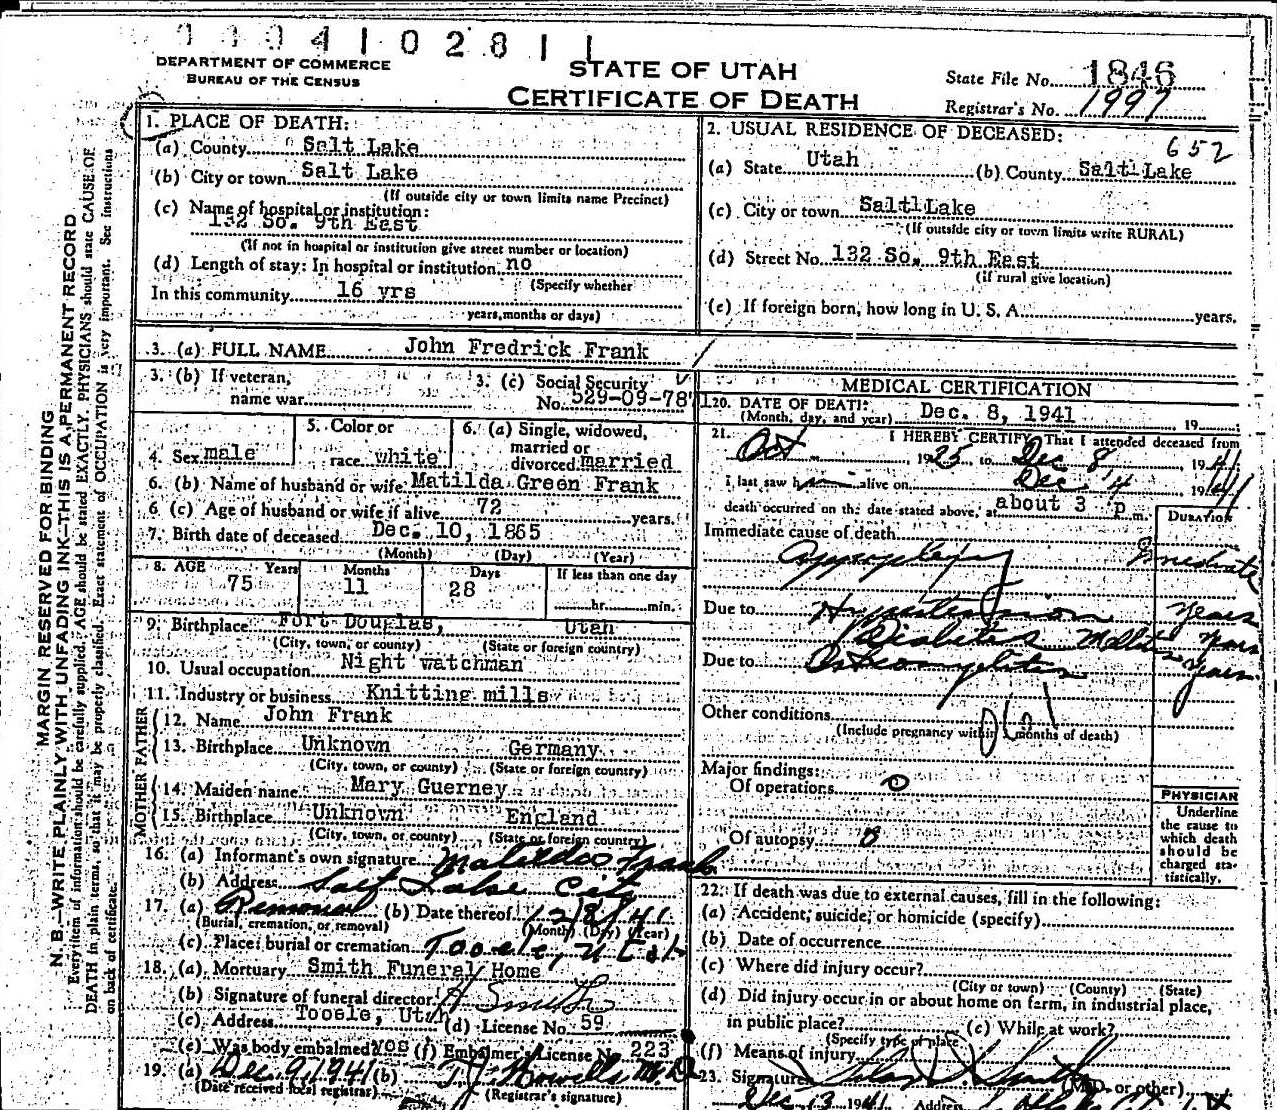 1 1 0 4 1 0 2 8 1 1
DEPARTMENT OF COMMERCE
BUREAU OF THE CENSUS
STATE OF UTAH
CERTIFICATE OF DEATH
State File No. 1846
Registrar's No. 1997
1. PLACE OF DEATH:
(a) County Salt Lake
(b) City or town Salt Lake
(If outside city or town limits name Precinct)
(c) Name of hospital or institution:
132 So. 9th East
(If not in hospital or institution give street number or location)
(d) Length of stay: In hospital or institution no
(Specify whether
In this community 16 yrs
years, months or days)
2. USUAL RESIDENCE OF DECEASED:
652
(a) State Utah (b) County Salt Lake
(c) City or town Salt Lake
(If outside city or town limits write RURAL)
(d) Street No. 132 So. 9th East
(if rural give location)
(e) If foreign born, how long in U. S. A. years.
3. (a) FULL NAME John Fredrick Frank
3. (b) If veteran,
name war
3. (c) Social Security
No. 529-09-78
4. Sex male
5. Color or
race white
6. (a) Single, widowed,
married or
divorced married
6. (b) Name of husband or wife Matilda Green Frank
6. (c) Age of husband or wife if alive 72 years.
7. Birth date of deceased Dec. 10, 1865
(Month) (Day) (Year)
8. AGE Years Months Days If less than one day
75 11 28 hr. min.
9. Birthplace Fort Douglas, Utah
(City, town, or county) (State or foreign country)
10. Usual occupation Night watchman
11. Industry or business Knitting mills
FATHER
12. Name John Frank
13. Birthplace Unknown Germany
(City, town, or county) (State or foreign country)
MOTHER
14. Maiden name Mary Guerney
15. Birthplace Unknown England
(City, town, or county) (State or foreign country)
16. (a) Informant's own signature Matilda Frank
(b) Address Salt Lake City
17. (a) Removal (b) Date thereof 12/8/41
(Burial, cremation, or removal) (Month) (Day) (Year)
(c) Place: burial or cremation Tooele, Utah
18. (a) Mortuary Smith Funeral Home
(b) Signature of funeral director Smith
(c) Address Tooele, Utah (d) License No. 59
(e) Was body embalmed yes (f) Embalmer's License No. 223
19. (a) Dec 9, 1941 (b) T. J. Howells M. D.
(Date received local registrar) (Registrar's signature)
MEDICAL CERTIFICATION
20. DATE OF DEATH:
(Month, day, and year) Dec. 8, 1941 19
21. I HEREBY CERTIFY, That I attended deceased from
Oct 1925 to Dec 8, 1941
I last saw him alive on Dec. 4 1941
death occurred on the date stated above, at about 3 p m.
DURATION
Immediate cause of death
Appoplexy Immediate
Due to Hypertension years
Diabetus Mellitus years
Due to Osteomylitis years
Other conditions
(Include pregnancy within 3 months of death)
Major findings:
Of operations 0
Of autopsy 0
PHYSICIAN
Underline
the cause to
which death
should be
charged sta-
tistically.
22. If death was due to external causes, fill in the following:
(a) Accident, suicide, or homicide (specify)
(b) Date of occurrence
(c) Where did injury occur?
(City or town) (County) (State)
(d) Did injury occur in or about home on farm, in industrial place,
in public place? (e) While at work?
(Specify type of place)
(f) Means of injury
23. Signature Smith (M.D. or other)
Dec 13 1941 Address
MARGIN RESERVED FOR BINDING
N. B.—WRITE PLAINLY WITH UNFADING INK—THIS IS A PERMANENT RECORD
Every item of information should be carefully supplied. AGE should be stated EXACTLY. PHYSICIANS should state CAUSE OF
DEATH in plain terms, so that it may be properly classified. Exact statement of OCCUPATION is very important. See instructions
on back of certificate.